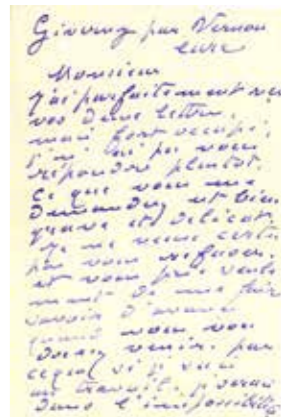 Giverny par Vernon
Eure
Monsieur
J'ai parfaitement reçu
vos deux lettres.
mais fort occupé,
je n'ai pu vous
répondre plutot.
ce que vous me
demandez est bien
grave et délicat.
je ne veux certes
pas vous refuser.
et vous prie seule
ment de me faire
savoir d'avance
quand vous vou
driez venir. par
ce que si j'
un travail. je serais
dans l'impossibilité